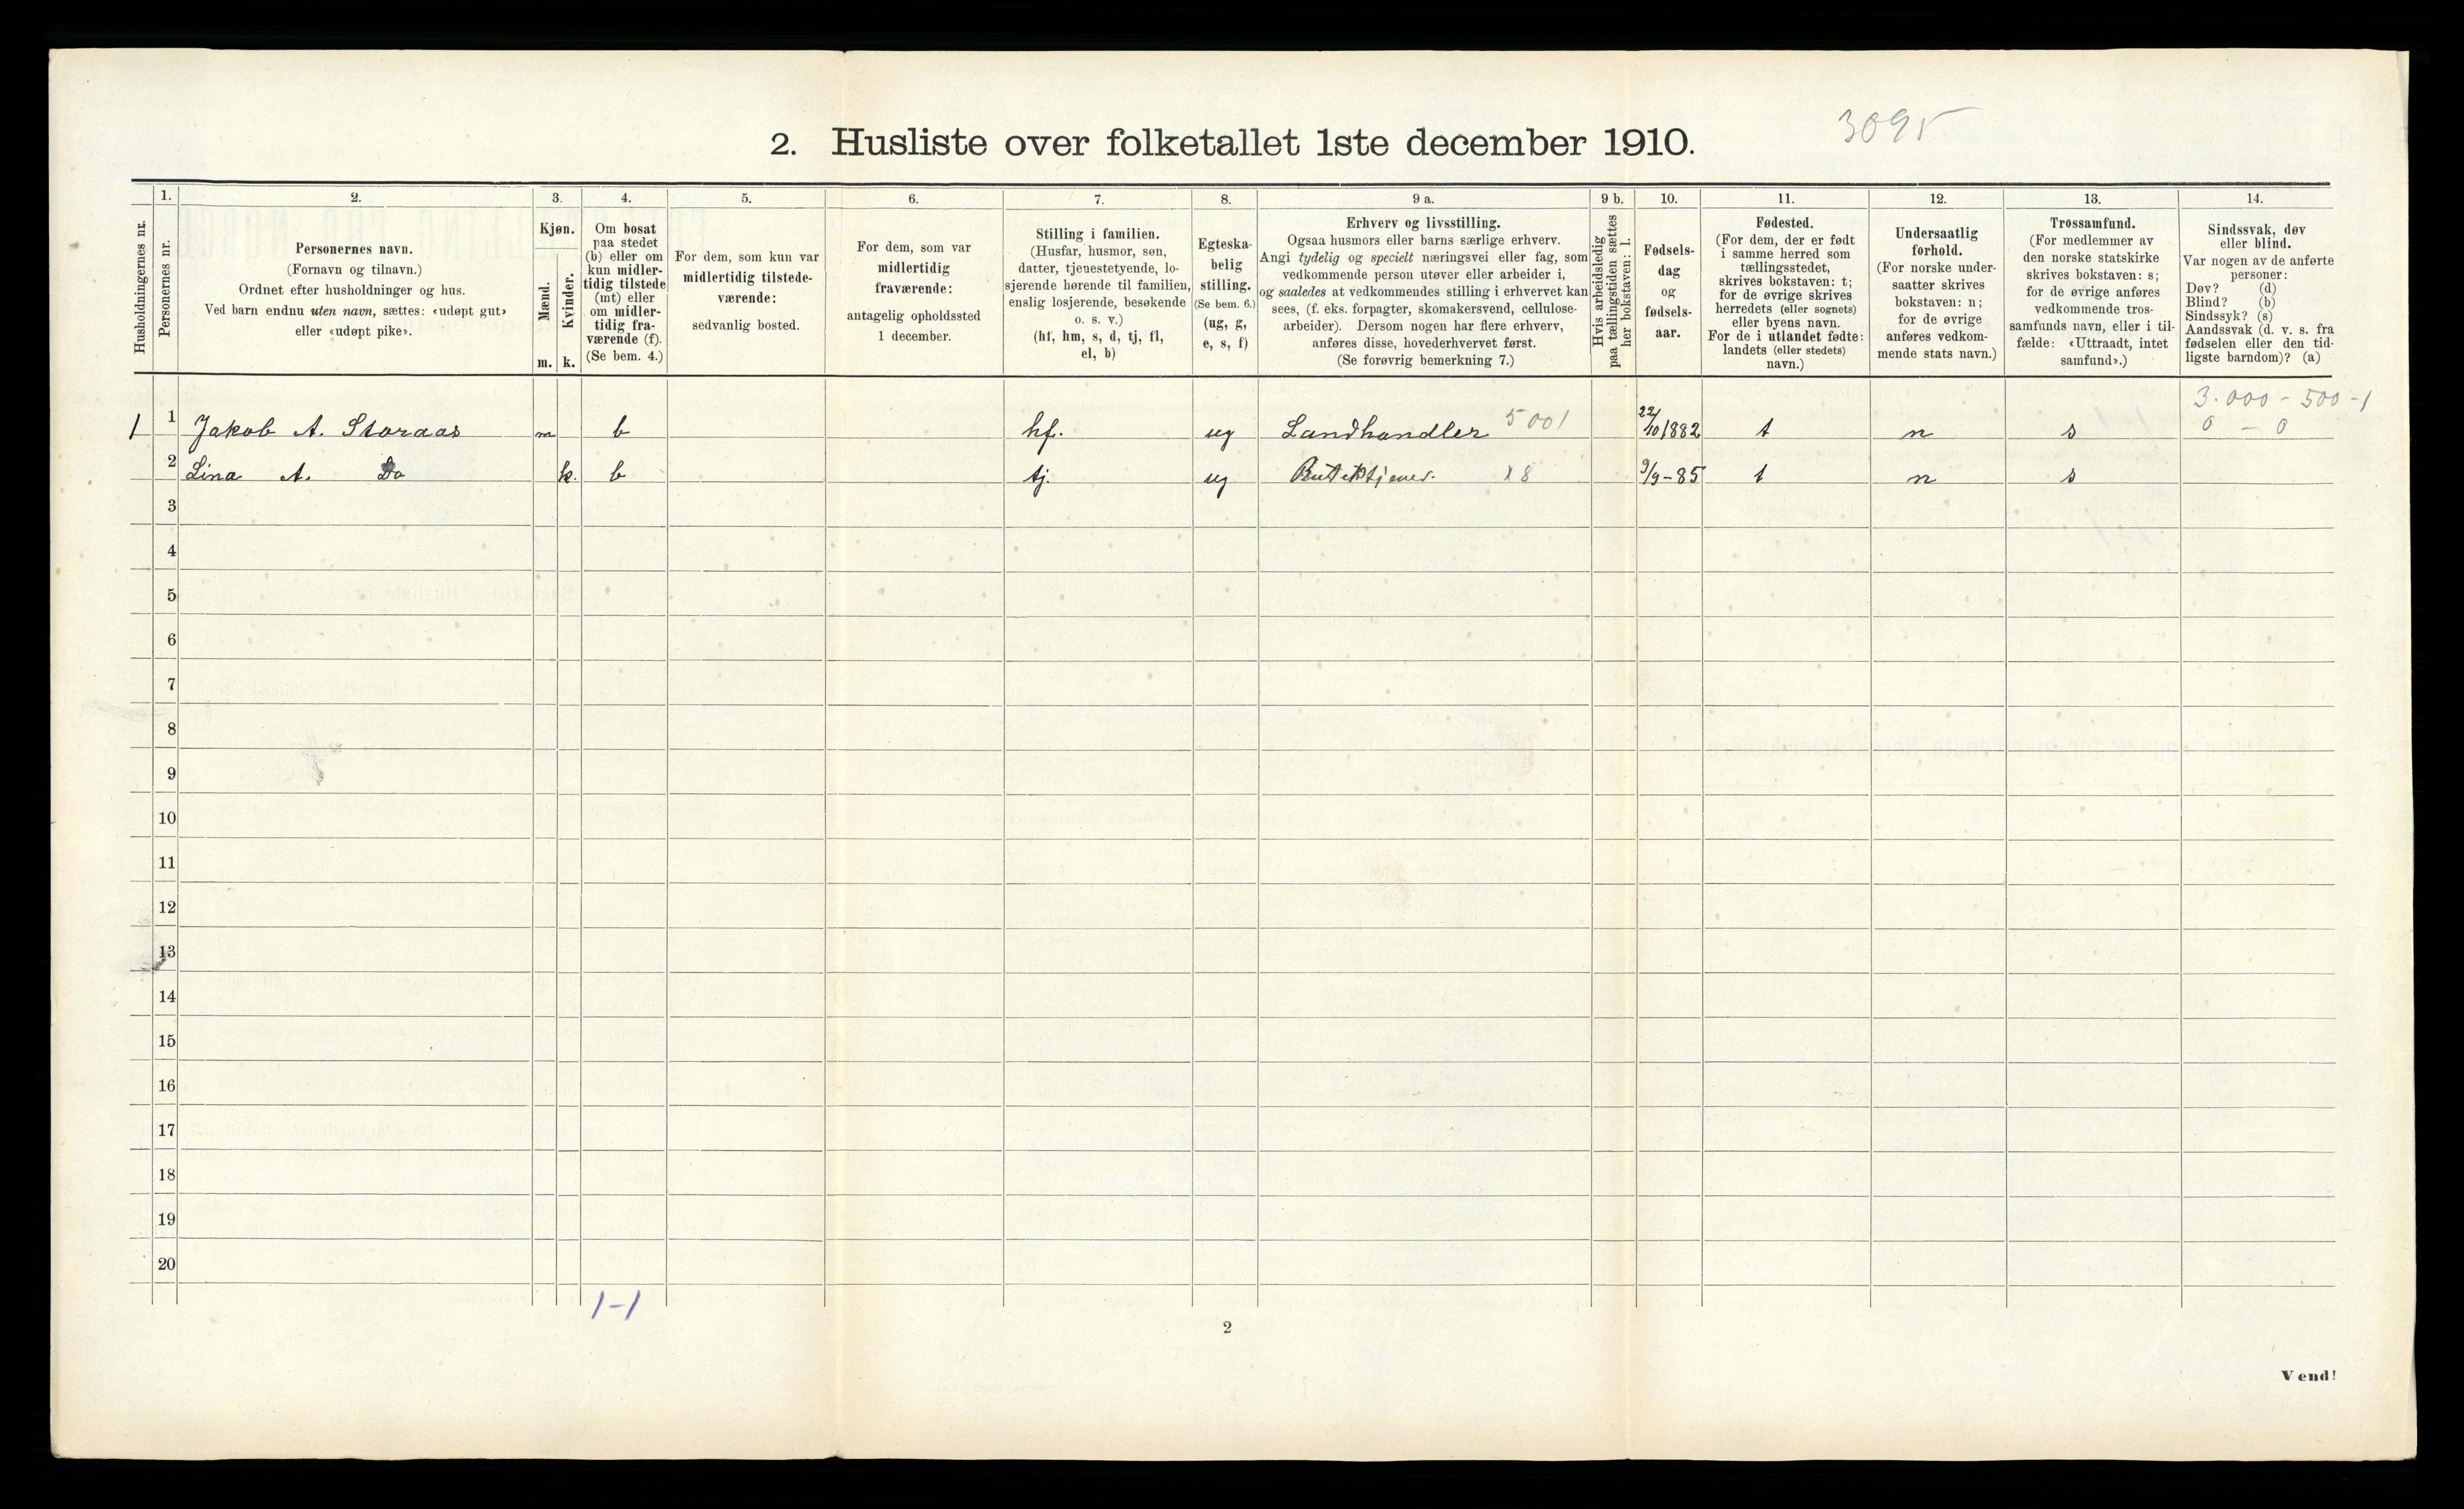 3095
2. Husliste over folketallet 1ste december 1910.
Husholdningernes nr.
1.
Personernes nr.
2.
Personernes navn.
(Fornavn og tilnavn.)
Ordnet efter husholdninger og hus.
Ved barn endnu uten navn, sættes: «udøpt gut»
eller «udøpt pike».
3.
Kjøn.
Mænd.
Kvinder.
m. k.
4.
Om bosat
paa stedet
(b) eller om
kun midler-
tidig tilstede
(mt) eller
om midler-
tidig fra-
værende (f).
(Se bem. 4.)
5.
For dem, som kun var
midlertidig tilstede-
værende:
sedvanlig bosted.
6.
For dem, som var
midlertidig
fraværende:
antagelig opholdssted
1 december.
7.
Stilling i familien.
(Husfar, husmor, søn,
datter, tjenestetyende, lo-
sjerende hørende til familien,
enslig losjerende, besøkende
o. s. v.)
(hf, hm, s, d, tj, fl,
el, b)
8.
Egteska-
belig
stilling.
(Se bem. 6.)
(ug, g,
e, s, f)
9 a.
Erhverv og livsstilling.
Ogsaa husmors eller barns særlige erhverv.
Angi tydelig og specielt næringsvei eller fag, som
vedkommende person utøver eller arbeider i,
og saaledes at vedkommendes stilling i erhvervet kan
sees, (f. eks. forpagter, skomakersvend, cellulose-
arbeider). Dersom nogen har flere erhverv,
anføres disse, hovederhvervet først.
(Se forøvrig bemerkning 7.)
9 b.
Hvis arbeidsledig
paa tællingstiden sættes
her bokstaven: l.
10.
Fødsels-
dag
og
fødsels-
aar.
11.
Fødested.
(For dem, der er født
i samme herred som
tællingsstedet,
skrives bokstaven: t;
for de øvrige skrives
herredets (eller sognets)
eller byens navn.
For de i utlandet fødte:
landets (eller stedets)
navn.)
12.
Undersaatlig
forhold.
(For norske under-
saatter skrives
bokstaven: n;
for de øvrige
anføres vedkom-
mende stats navn.)
13.
Trossamfund.
(For medlemmer av
den norske statskirke
skrives bokstaven: s;
for de øvrige anføres
vedkommende tros-
samfunds navn, eller i til-
fælde: «Uttraadt, intet
samfund».)
14.
Sindssvak, døv
eller blind.
Var nogen av de anførte
personer:
Døv? (d)
Blind? (b)
Sindssyk? (s)
Aandssvak (d. v. s. fra
fødselen eller den tid-
ligste barndom)? (a)
3.000 - 500 - 1
0 - 0
1 1 Jakob A. Storaas m b hf. ug Landhandler 5001 22/10 1882 t n s
2 Lina A. Do k. b tj. ug Butiktjener. X8 9/9-85 t n s
3
4
5
6
7
8
9
10
11
12
13
14
15
16
17
18
19
20
1-1
2
Vend!